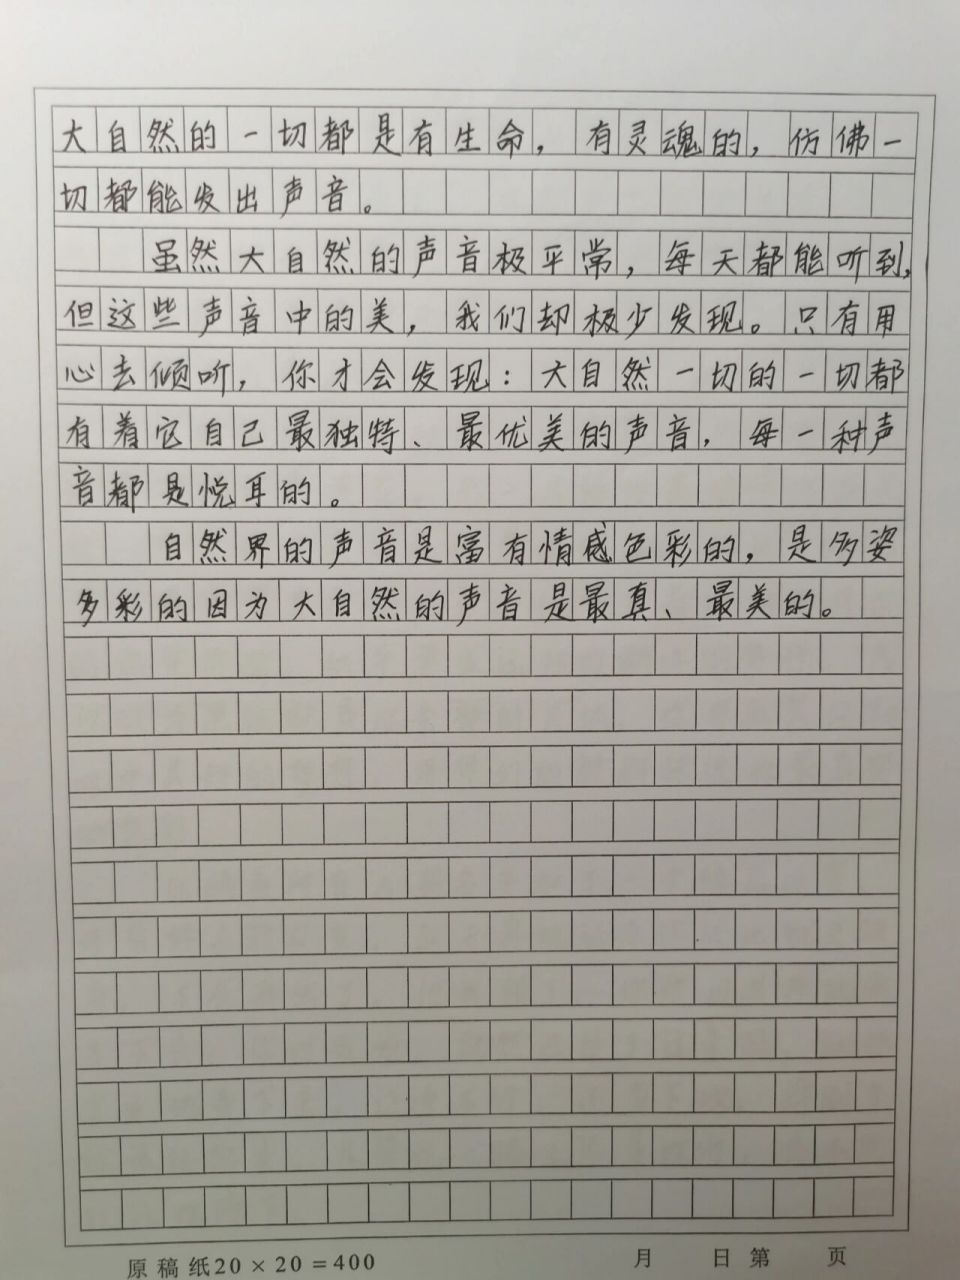 大自然的一切都是有生命，有灵魂的，仿佛一
切都能发出声音。
虽然大自然的声音极平常，每天都能听到，
但这些声音中的美，我们却极少发现。只有用
心去倾听，你才会发现：大自然一切的一切都
有着它自己最独特、最优美的声音，每一种声
音都是悦耳的。
自然界的声音是富有情感色彩的，是多姿
多彩的因为大自然的声音是最真、最美的。
原稿纸20×20=400 月 日 第 页